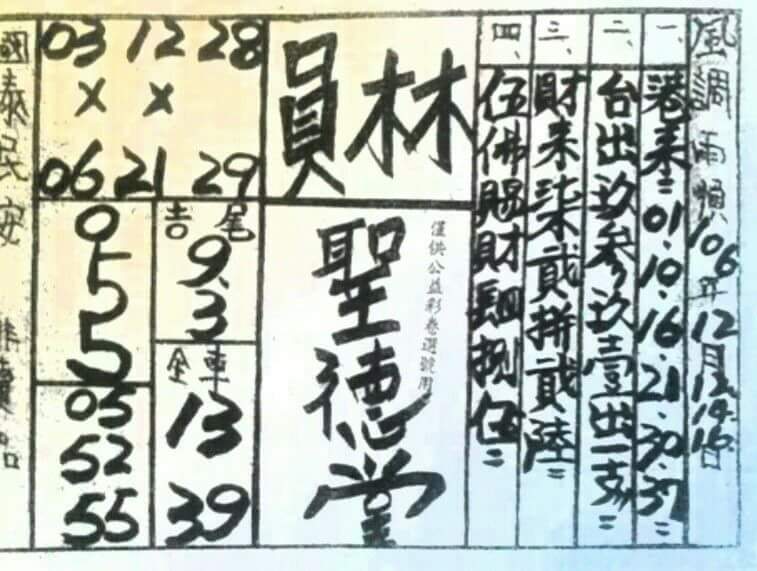 風調雨順106年12月12.14.16日
一、港来=01.10.16.21.30.37=
二、台出玖參玖壹出一支=
三、財来柒貳拼貳陸=
四、伍佛賜財捌伍=
員林
僅供公益彩卷選號用
聖德堂
03 12 28
× ×
06 21 29
吉尾
9.3
全車
13
39
0
5
5
05
52
55
國泰民安 非賣品